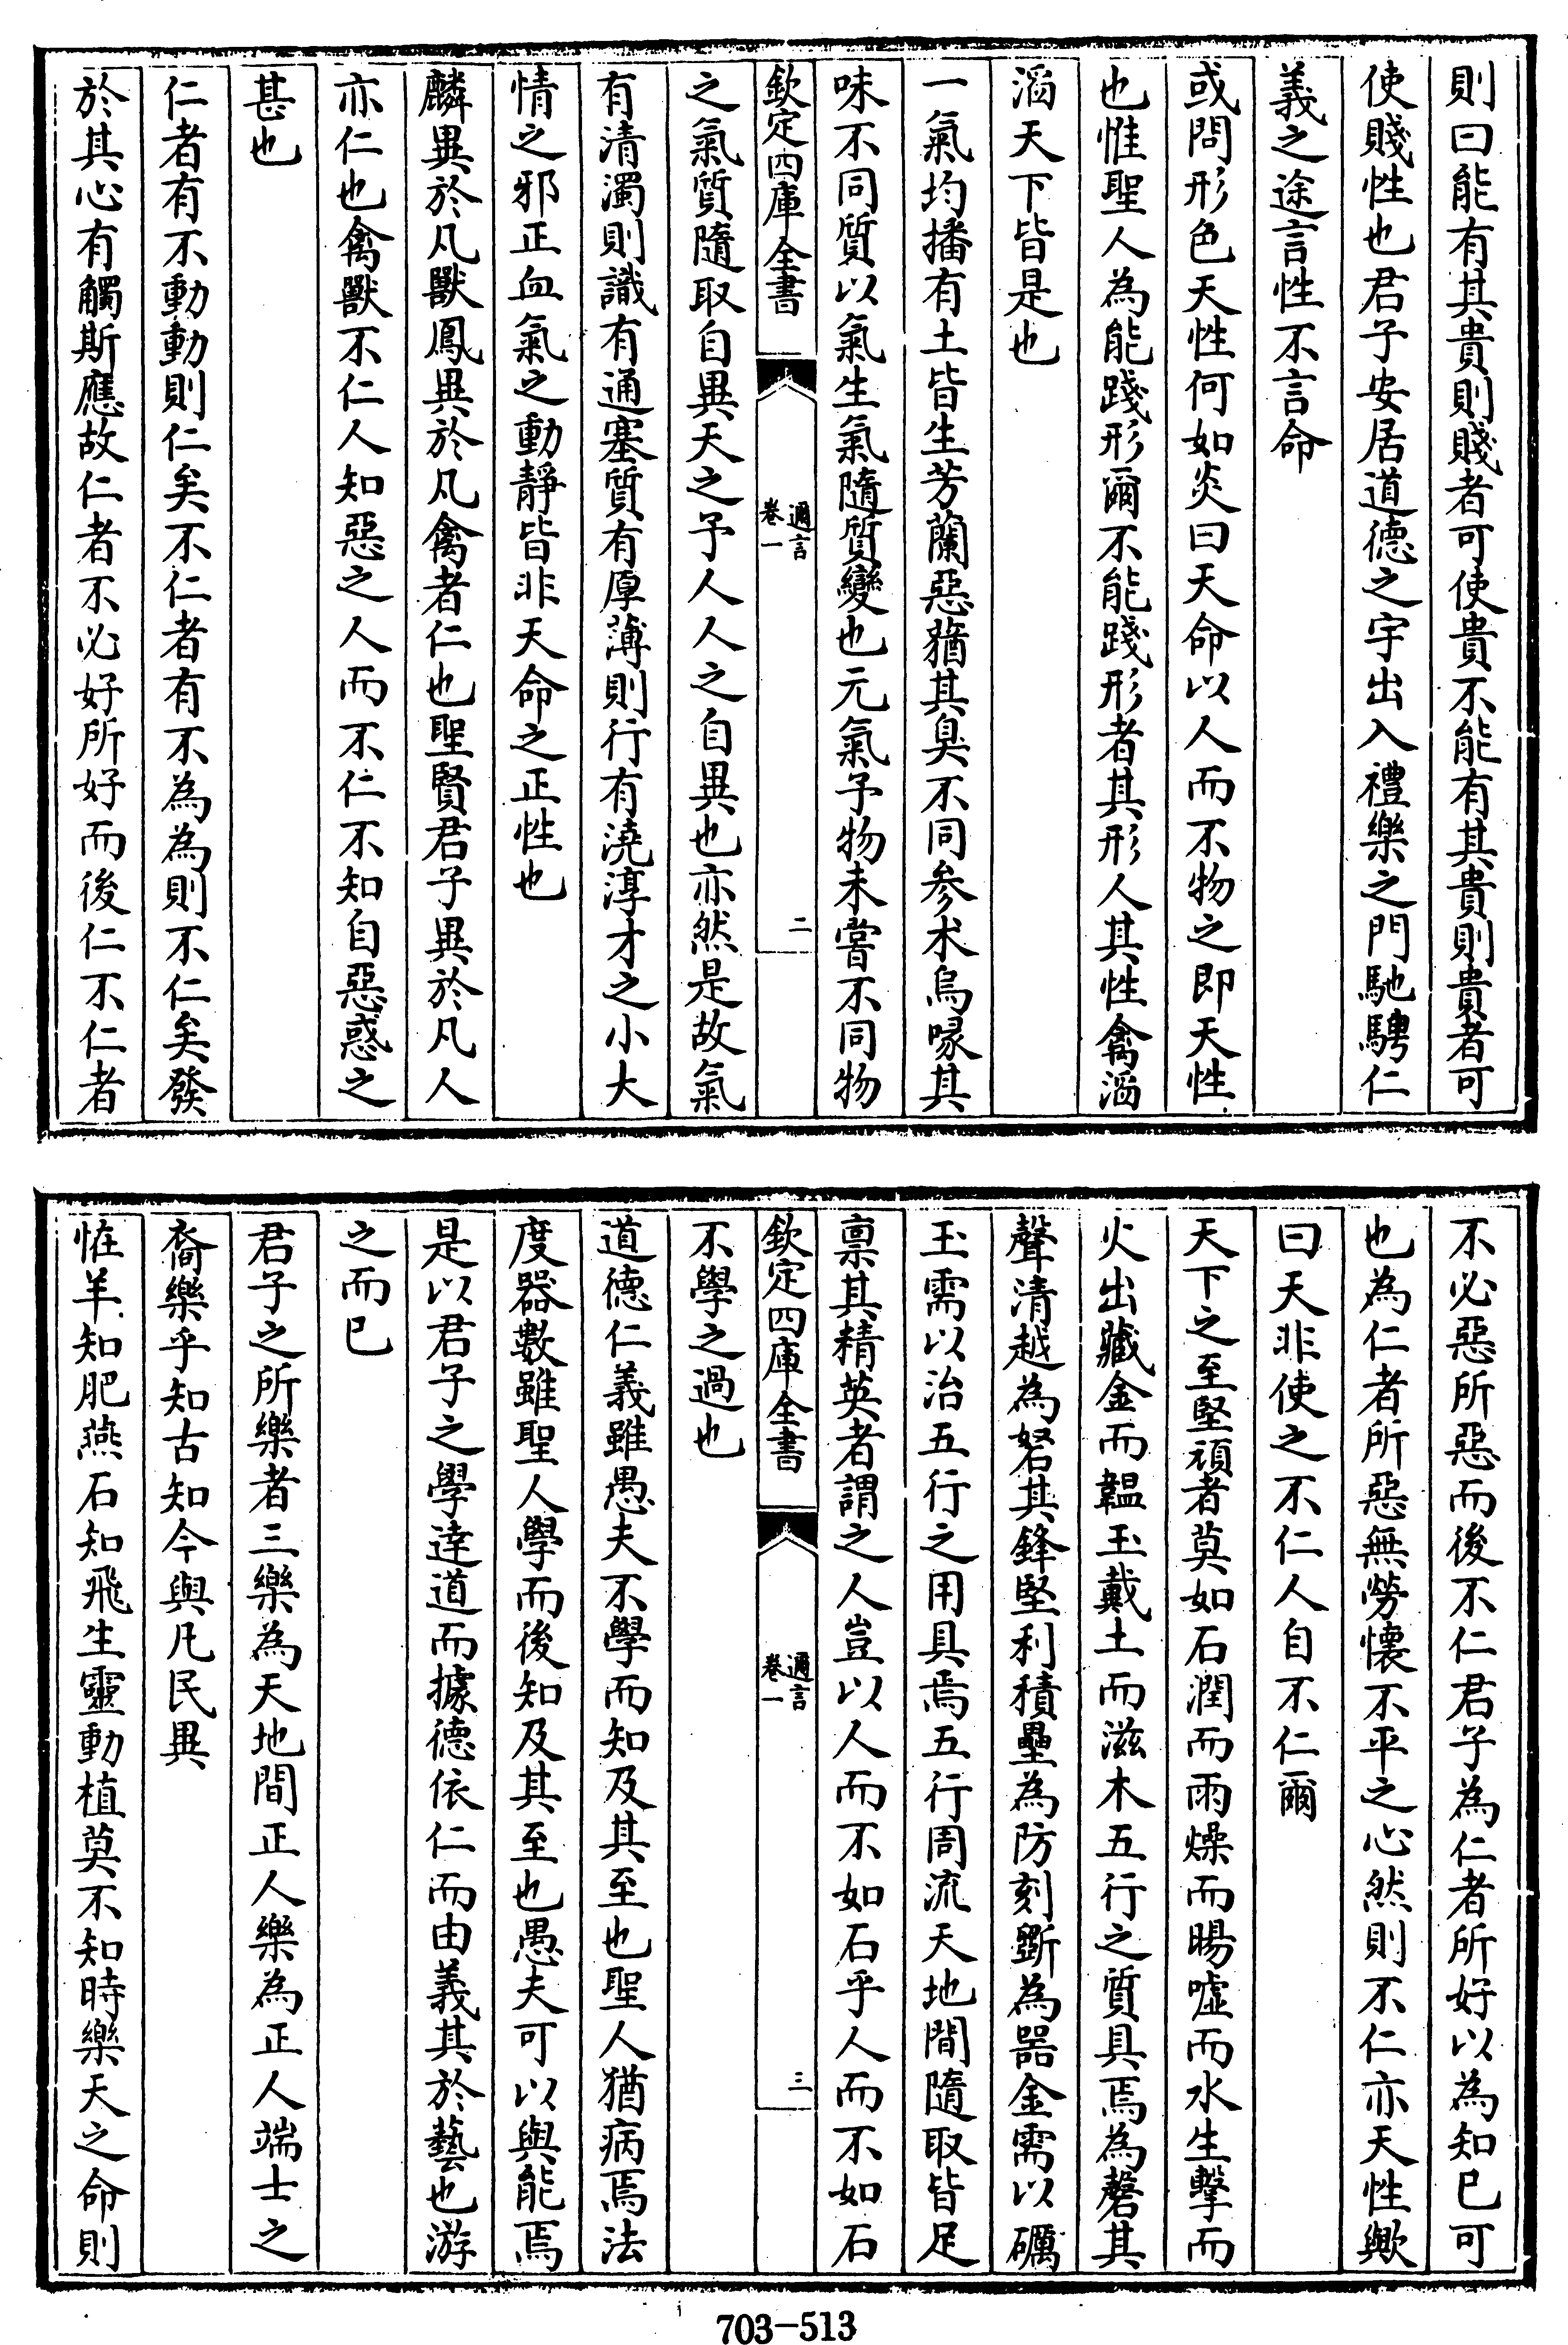 則曰能有其貴則賤者可使貴不能有其貴則貴者可
使賤性也君子安居道德之宇出入禮樂之門馳騁仁
義之途言性不言命
或問形色天性何如炎曰天命以人而不物之即天性
也惟聖人為能踐形爾不能踐形者其形人其性禽滔
滔天下皆是也
一氣均播有土皆生芳蘭惡蕕其臭不同參朮烏喙其
味不同質以氣生氣隨質變也元氣予物未嘗不同物
欽定四庫全書
邇言
卷一
二
之氣質隨取自異天之予人人之自異也亦然是故氣
有清濁則識有通塞質有厚薄則行有澆淳才之小大
情之邪正血氣之動靜皆非天命之正性也
麟異於凡獸鳳異於凡禽者仁也聖賢君子異於凡人
亦仁也禽獸不仁人知惡之人而不仁不知自惡惑之
甚也
仁者有不動動則仁矣不仁者有不為為則不仁矣發
於其心有觸斯應故仁者不必好所好而後仁不仁者
不必惡所惡而後不仁君子為仁者所好以為知已可
也為仁者所惡無勞懷不平之心然則不仁亦天性歟
曰天非使之不仁人自不仁爾
天下之至堅頑者莫如石潤而雨燥而暘噓而水生擊而
火出藏金而韞玉戴土而滋木五行之質具焉為磬其
聲清越為砮其鋒堅利積壘為防刻斲為器金需以礪
玉需以治五行之用具焉五行周流天地間隨取皆足
稟其精英者謂之人豈以人而不如石乎人而不如石
欽定四庫全書
邇言
卷一
三
不學之過也
道德仁義雖愚夫不學而知及其至也聖人猶病焉法
度器數雖聖人學而後知及其至也愚夫可以與能焉
是以君子之學達道而據德依仁而由義其於藝也游
之而已
君子之所樂者三樂為天地間正人樂為正人端士之
裔樂乎知古知今與凡民異
恠羊知肥燕石知飛生靈動植莫不知時樂天之命則
703-513